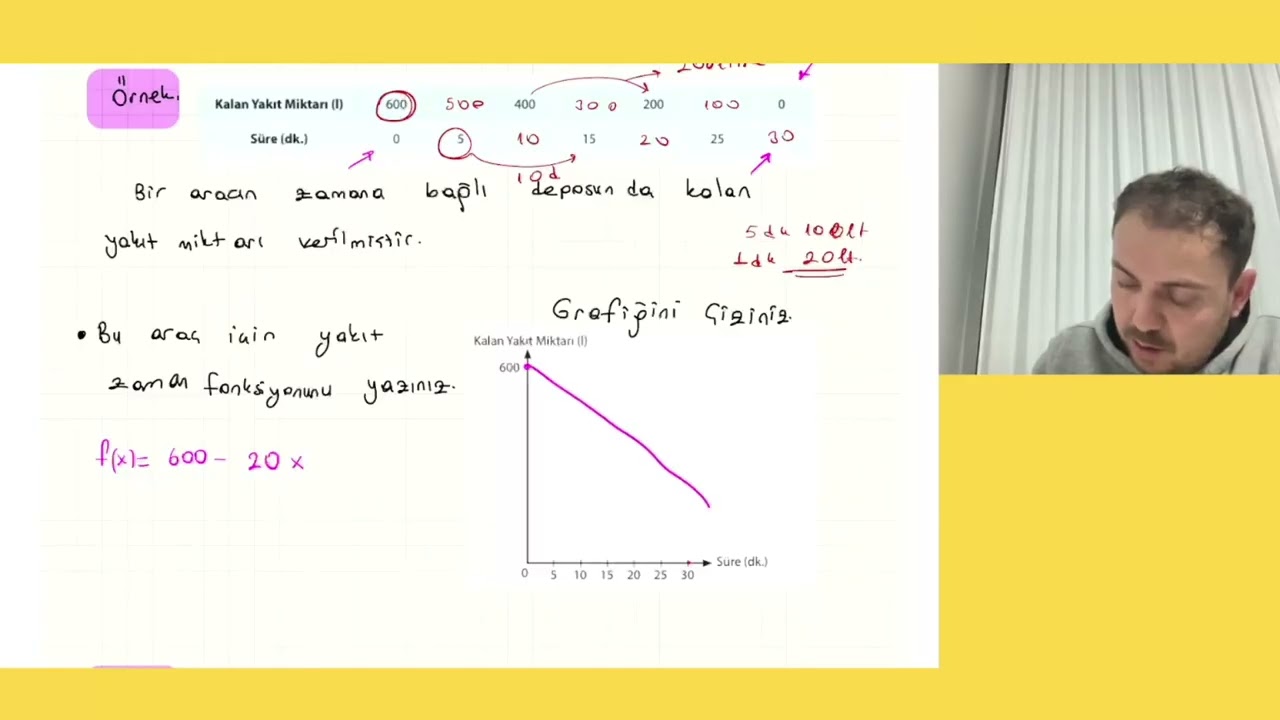 Örnek.
Kalan Yakıt Miktarı (l) 600 500 400 300 200 100 0
Süre (dk.) 0 5 10 15 20 25 30
10d
Bir aracın zamana bağlı deposunda kalan
yakıt miktarı verilmiştir.
5 dk 100lt
1dk 20lt.
Grafiğini Çiziniz.
• Bu araç için yakıt
zaman fonksiyonunu yazınız.
f(x)= 600 - 20x
Kalan Yakıt Miktarı (l)
600
Süre (dk.)
0 5 10 15 20 25 30